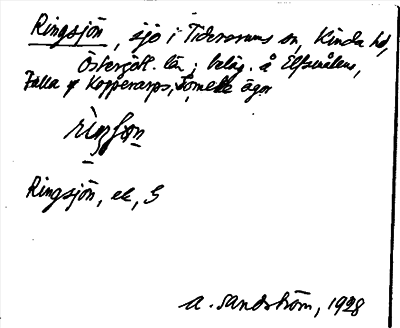 Ringsjön, sjö i Tidersrums sn, Kinda hd,
Östergötl. län; beläg. å Elfsvåkens,
Falla o Kopperarps, Tomelts ägor
Ringsjön, ek, S
A. Sandström, 1928